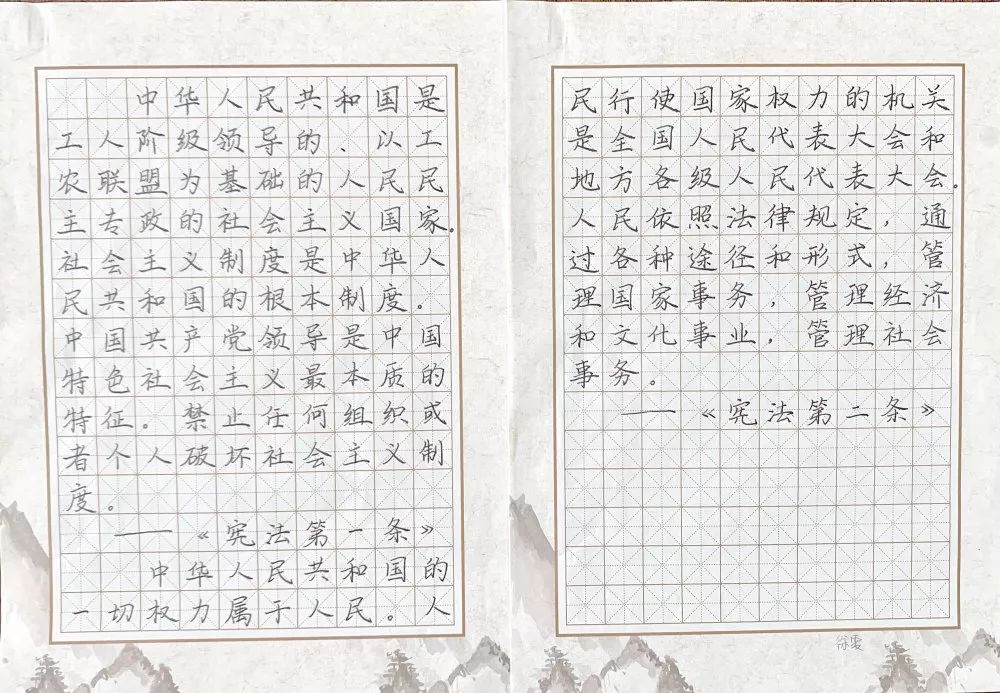 中华人民共和国是
工人阶级领导的、以工
农联盟为基础的人民民
主专政的社会主义国家。
社会主义制度是中华人
民共和国的根本制度。
中国共产党领导是中国
特色社会主义最本质的
特征。禁止任何组织或
者个人破坏社会主义制
度。
——《宪法第一条》
中华人民共和国的
一切权力属于人民。人
民行使国家权力的机关
是全国人民代表大会和
地方各级人民代表大会。
人民依照法律规定，通
过各种途径和形式，管
理国家事务，管理经济
和文化事业，管理社会
事务。
——《宪法第二条》